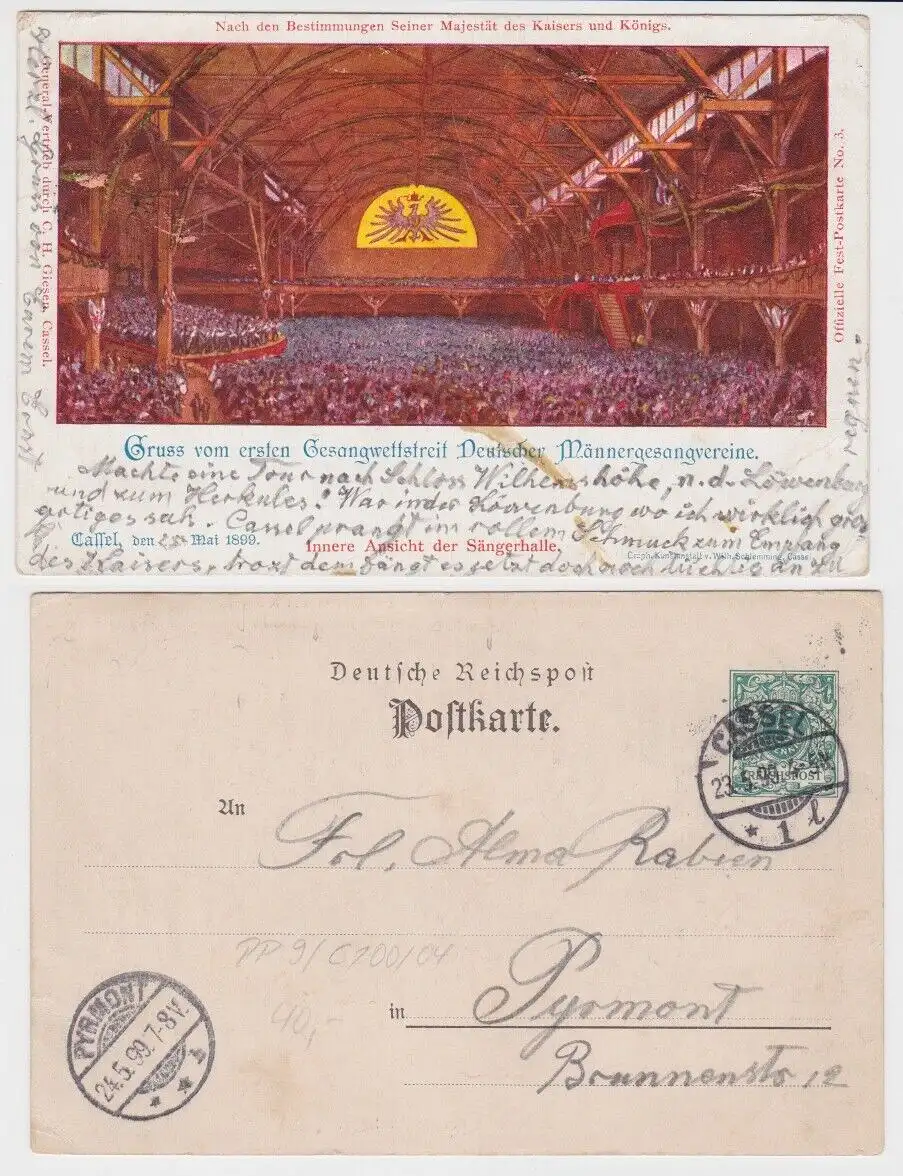 Nach den Bestimmungen Seiner Majestät des Kaisers und Königs.
General-Vertrieb durch C. H. Giesen, Cassel.
Offizielle Fest-Postkarte No. 3.
Gruss vom ersten Gesangwettstreit Deutscher Männergesangvereine.
Machte eine Tour nach Schloss Wilhelmshöhe, n. d. Löwenburg
und zum Herkules! War in der Löwenburg wo ich wirklich groß
artiges sah. Cassel prangt im vollem Schmuck zum Empfang
Cassel, den Mai 1899.
Innere Ansicht der Sängerhalle.
Graph. Kunstanstalt v. Wilh. Schlemming, Cassel
des Kaisers, trozt dem fängt es jetzt doch noch tüchtig an zu
regnen.
Herzl. Gruss von Eurem Ernst
Deutsche Reichspost
Postkarte.
REICHSPOST
CASSEL
23.5.99
* 1 l
An
Frl. Alma Rabien
PP 9/C200/04
40,-
in Pyrmont
Brunnenstr 12
PYRMONT
24.5.99.7-8V.
* *